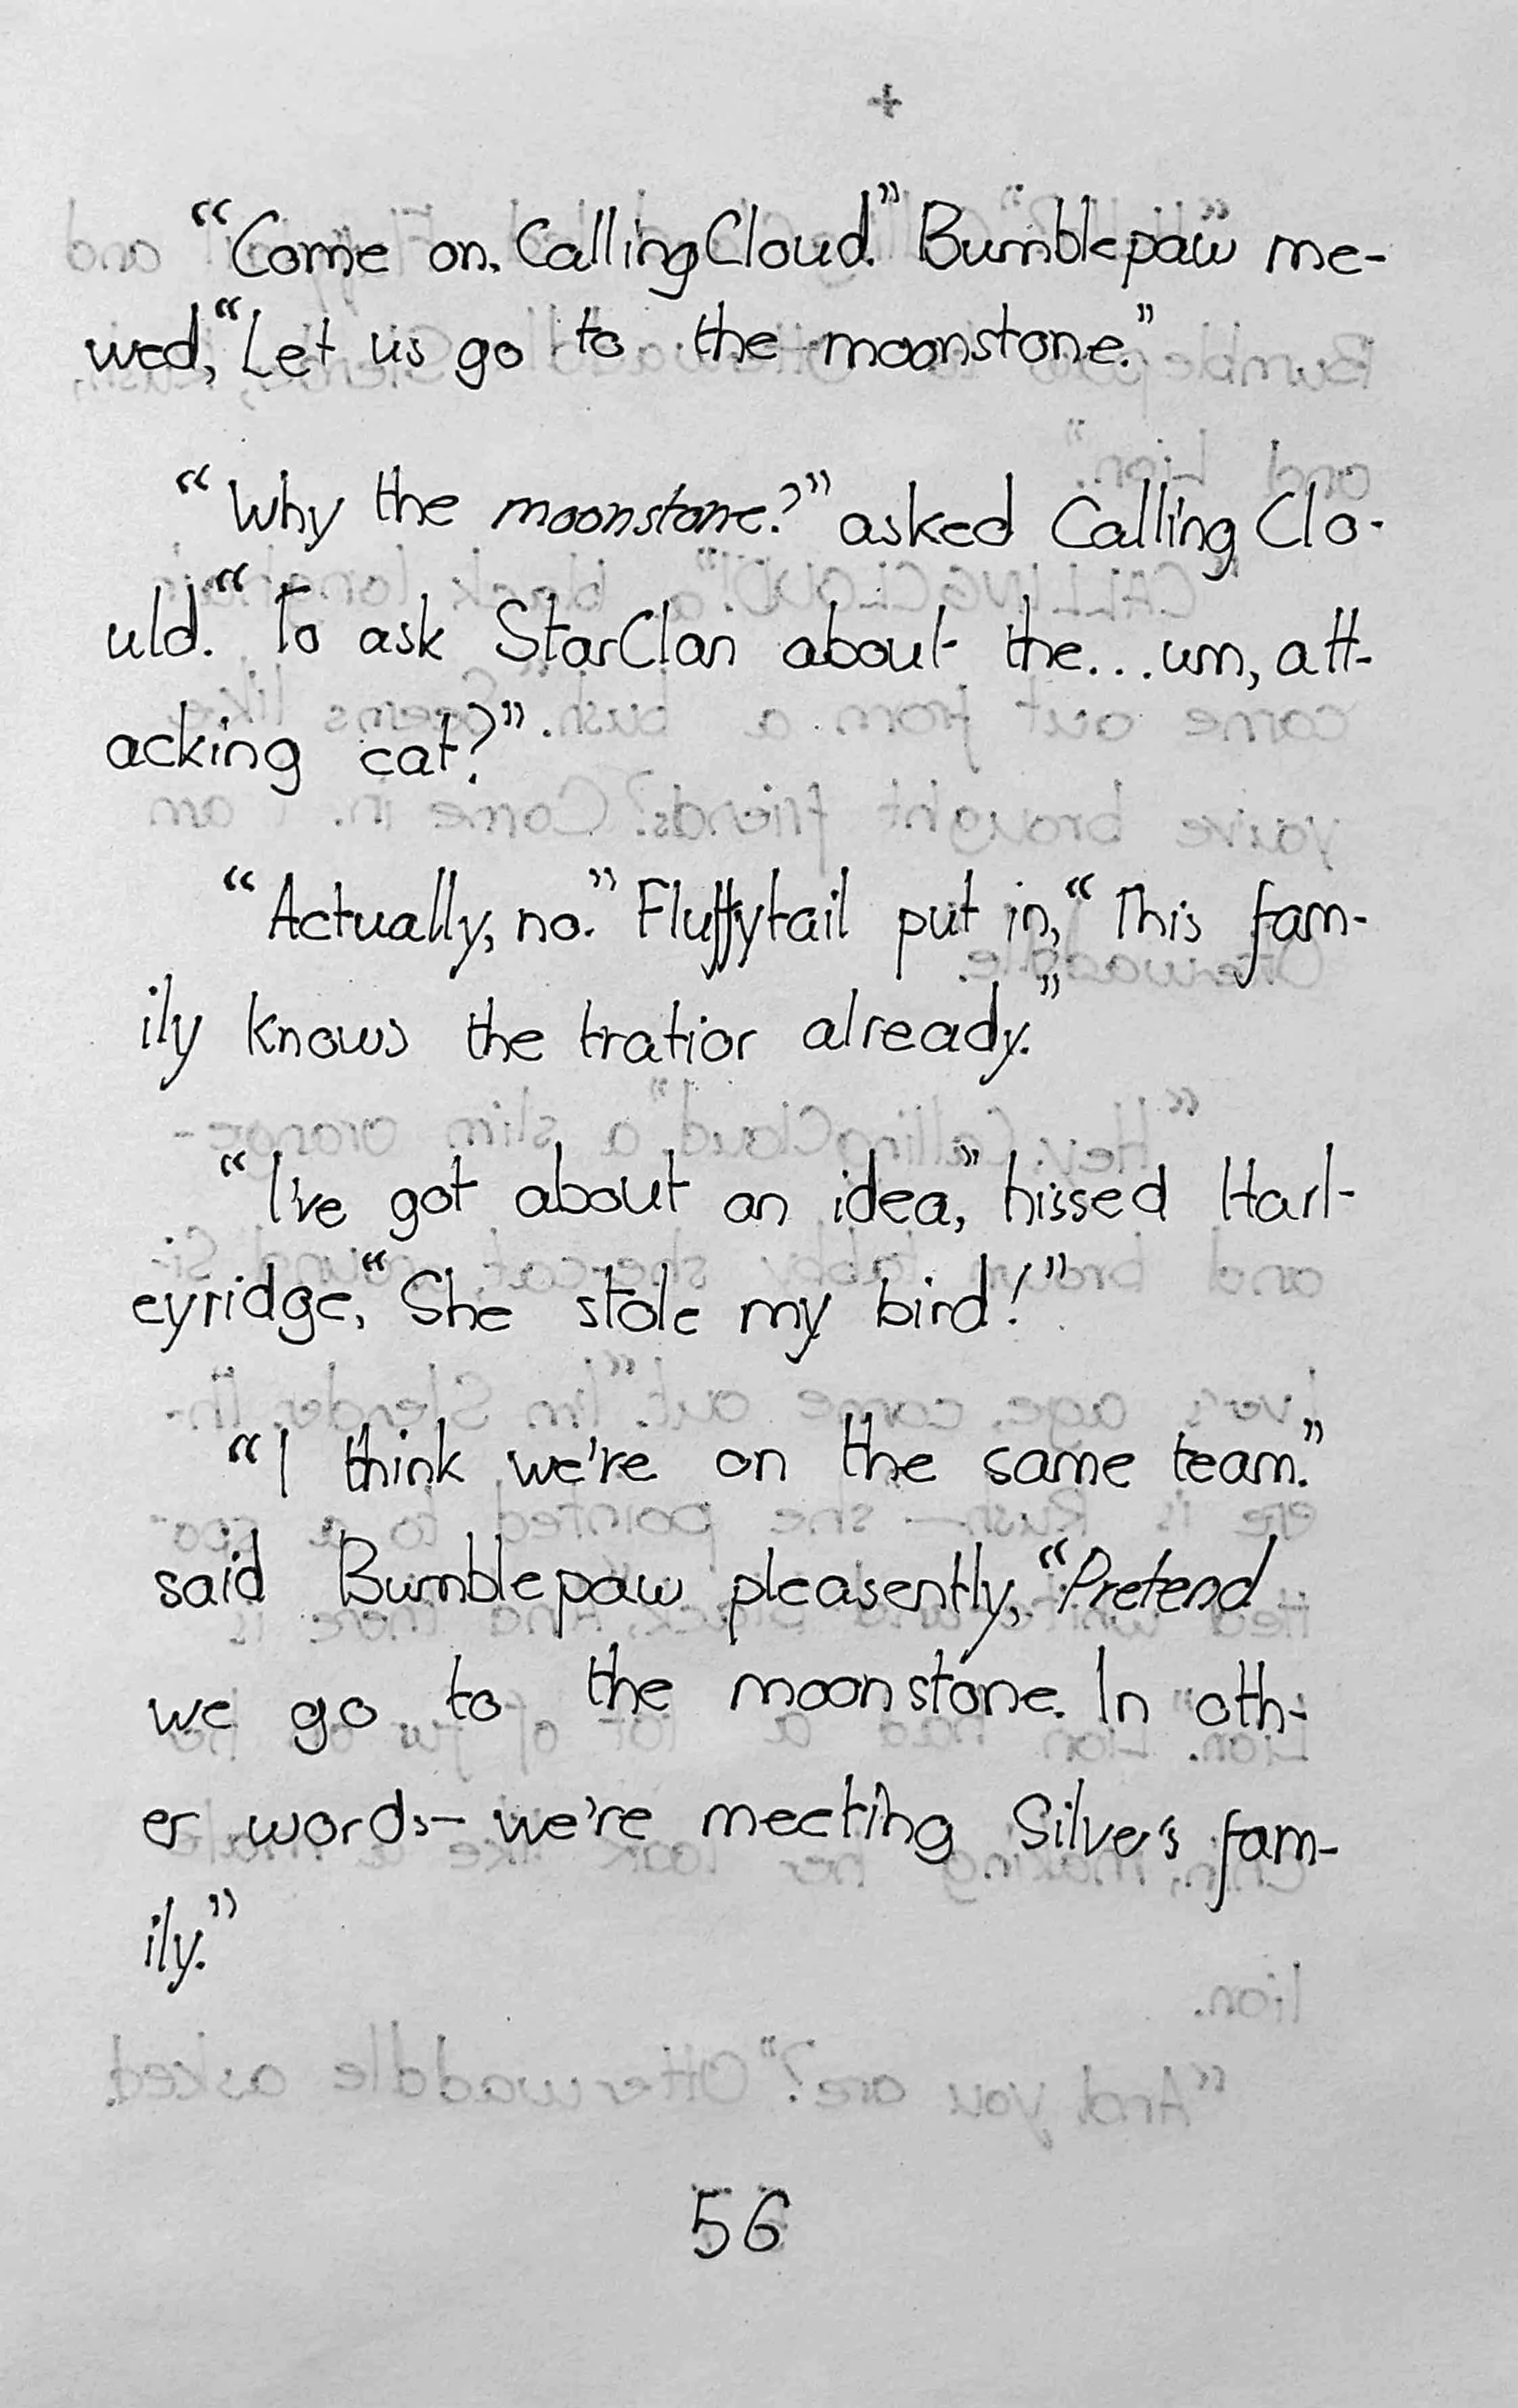 “Come on, CallingCloud.” Bumblepaw me-
wed, “Let us go to the moonstone.”
“Why the moonstone?” asked Calling Clo-
uld. “To ask StarClan about the...um, att-
acking cat?”
“Actually, no.” Fluffytail put in, “This fam-
ily knows the tratior already.”
“I've got about an idea,” hissed Harl-
eyridge, “She stole my bird!”
“I think we're on the same team.”
said Bumblepaw pleasently, “Pretend
we go to the moonstone. In oth-
er words— we're meeting Silver's fam-
ily.”
56